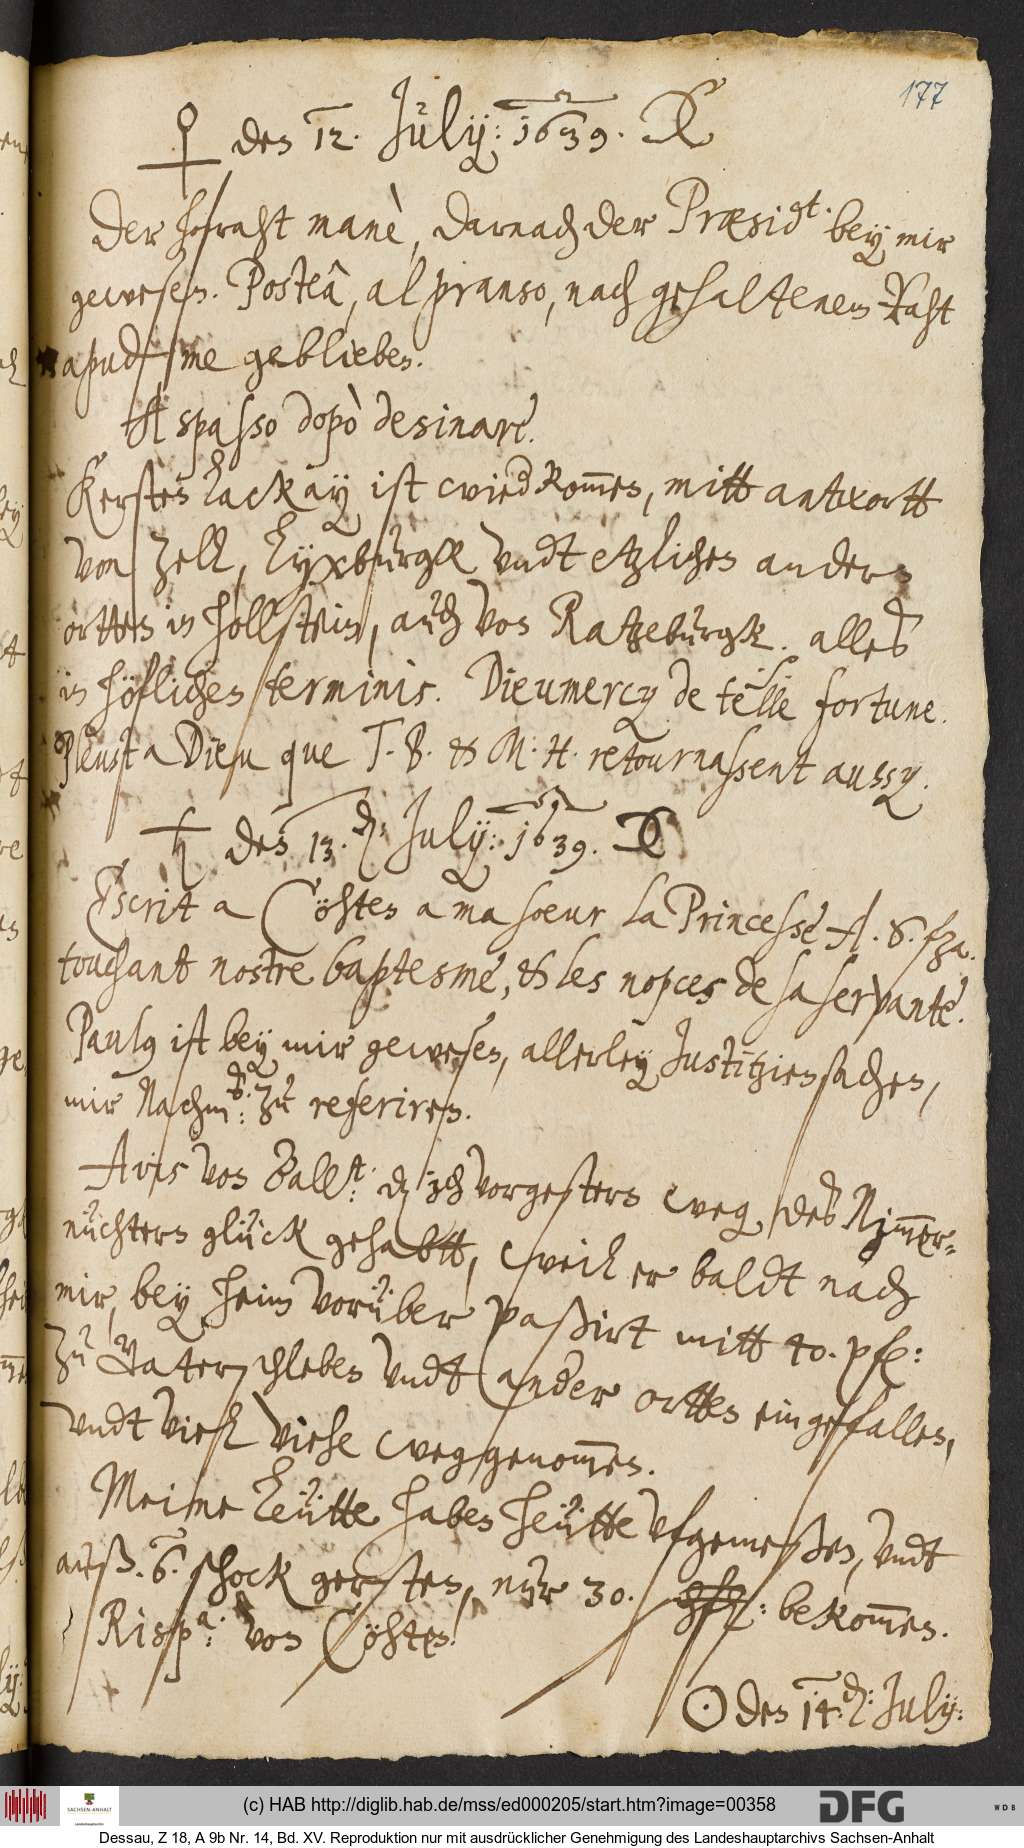 177
♀ den 12. July: 1639.
Der Hofraht manè, darnach der Præsid<sup>t</sup>. bey mir
gewesen. Posteà, al pranso, nach gehaltenem Raht
apud me geblieben.
A spasso dopò desinare.
Kersten Lackay ist wied kommen, mitt antwortt
von Zell, Lyxburgk vndt etzlichen andern
ortten in Hollstein, auch von Ratzeburgk. alles
in höflichen terminis. Dieumercy de telle fortune.
Pleust a Dieu que T. B. & M. H. retournassent aussy.
♄ den 13. July: 1639.
Escrit a Cöhten a ma soeur la Princesse A. S.
touchant nostre baptesme, & les nopces de sa servante.
Paulg ist bey mir gewesen, allerley Justitziensachen,
mir Nachm: zu referiren.
Avis von Ball<sup>st</sup>: dz ich vorgestern weg, des Nimmer-
nüchterns glück gehabtt, weil er baldt nach
mir, bey Heim vorüber paßirt mitt 40. pfe:
zu Baterschleben vndt ander ortten eingefallen,
vndt viel viehe weggenommen.
Meine Leütte haben heütte vfgemeßen, vndt
auß. 6. schock gersten, nur 30. bekommen.
Risp<sup>a</sup>: von Cöhten.
☉ den 14. July:
(c) HAB http://diglib.hab.de/mss/ed000205/start.htm?image=00358
SACHSEN-ANHALT
DFG
WDB
Dessau, Z 18, A 9b Nr. 14, Bd. XV. Reproduktion nur mit ausdrücklicher Genehmigung des Landeshauptarchivs Sachsen-Anhalt